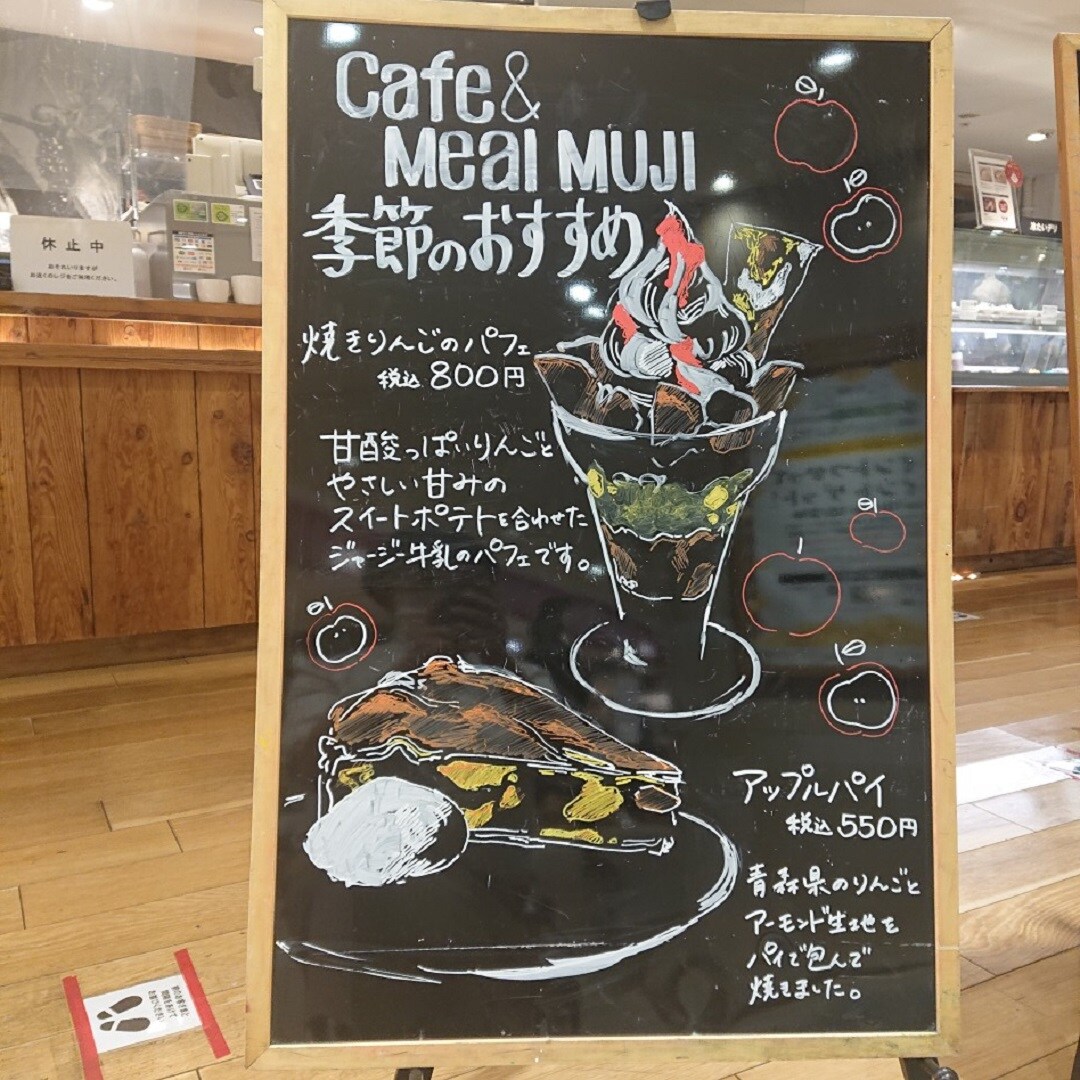 Cafe&
Meal MUJI
季節のおすすめ
焼きりんごのパフェ
税込 800円
甘酸っぱいりんごと
やさしい甘みの
スイートポテトを合わせた
ジャージー牛乳のパフェです。
アップルパイ
税込 550円
青森県のりんごと
アーモンド生地を
パイで包んで
焼きました。
休止中